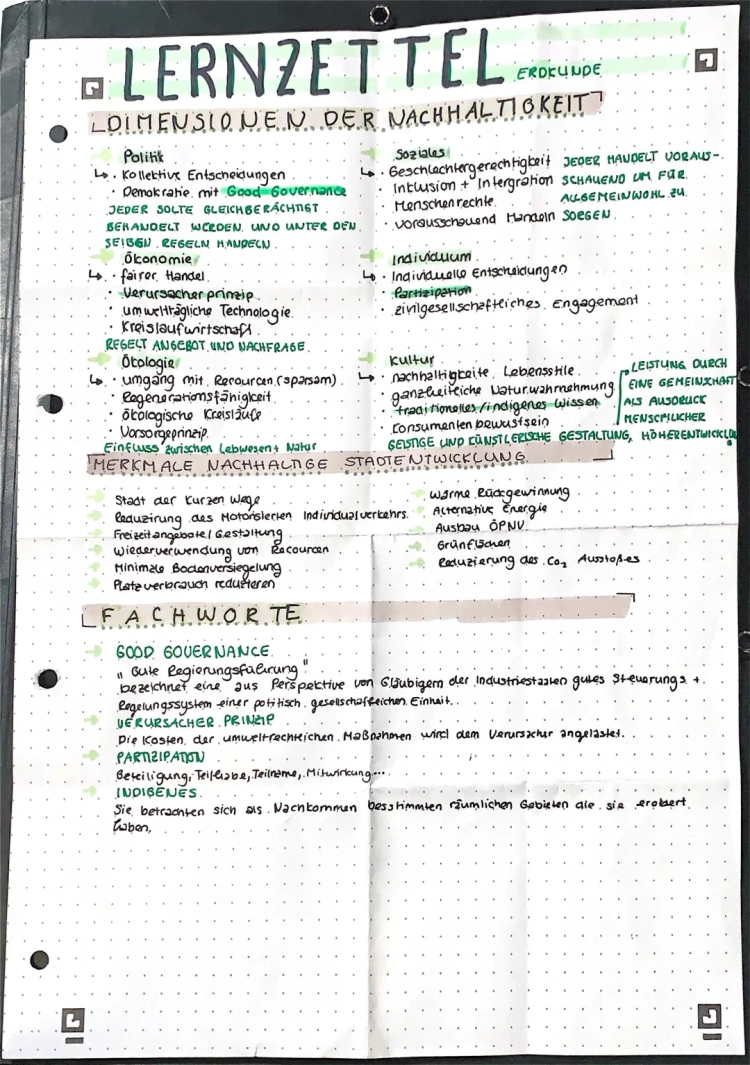 LERNZETTEL ERDKUNDE
DIMENSIONEN DER NACHHALTIGKEIT
Politik
↳ · Kollektive Entscheidungen
· Demokratie mit Good Governance
JEDER SOLTE GLEICHBERÄCHTIGT
BEHANDELT WERDEN UND UNTER DEN
SELBEN REGELN HANDELN
Soziales
↳ · Geschlechtergerechtigkeit
· Inklusion + Intergration
· Menschenrechte
· vorausschauend Handeln
JEDER HANDELT VORAUS-
SCHAUEND UM FÜR
ALLGEMEINWOHL ZU
SORGEN.
Ökonomie
↳ · fairer Handel
· Verursacherprinzip
· umweltträgliche Technologie
· Kreislaufwirtschaft
REGELT ANGEBOT UND NACHFRAGE
Individuum
↳ · Individuelle Entscheidungen
· Partizipation
· zivilgesellschaftliches Engagement
Ökologie
↳ · umgang mit Recourcen (sparsam)
· Regenerationsfähigkeit
· ökologische Kreisläufe
· Vorsorgeprinzip
Einfluss zwischen Lebwesen + Natur
Kultur
↳ · nachhaltigkeits Lebensstile
· ganzheitliche Naturwahrnehmung
· traditionelles/indigenes Wissen
· Consumenten bewustsein
LEISTUNG DURCH
EINE GEMEINSCHAFT
ALS AUSDRUCK
MENSCHLICHER
GEISTIGE UND KÜNSTLERISCHE GESTALTUNG, HÖHERENTWICKLUNG
MERKMALE NACHHALTIGE STADTENTWICKLUNG
Stadt der Kurzen Wege
Reduzirung des Motorisierten Individualverkehrs
Freizeitangebote/Gestaltung
Wiederverwendung von Recourcen
Minimale Bodenversiegelung
Platzverbrauch reduzieren
Wärme Rückgewinnung
Alternative Energie
Ausbau ÖPNV
Grünflächen
Reduzierung des Co₂ Ausstoßes
FACHWORTE
GOOD GOVERNANCE
"Gute Regierungsführung"
bezeichnet eine aus Perspektive von Gläubigern der Industriestaaten gutes Steuerungs +
Regelungssystem einer politisch gesellschaftlichen Einheit.
VERURSACHER PRINZIP
Die Kosten der umweltrechtlichen Maßnahmen wird dem Verursacher angelastet.
PARTIZIPATION
Beteiligung, Teilhabe, Teilname, Mitwirkung...
INDIGENES
Sie betrachten sich als Nachkommen besstimmten räumlichen Gebieten die sie erobert
haben.